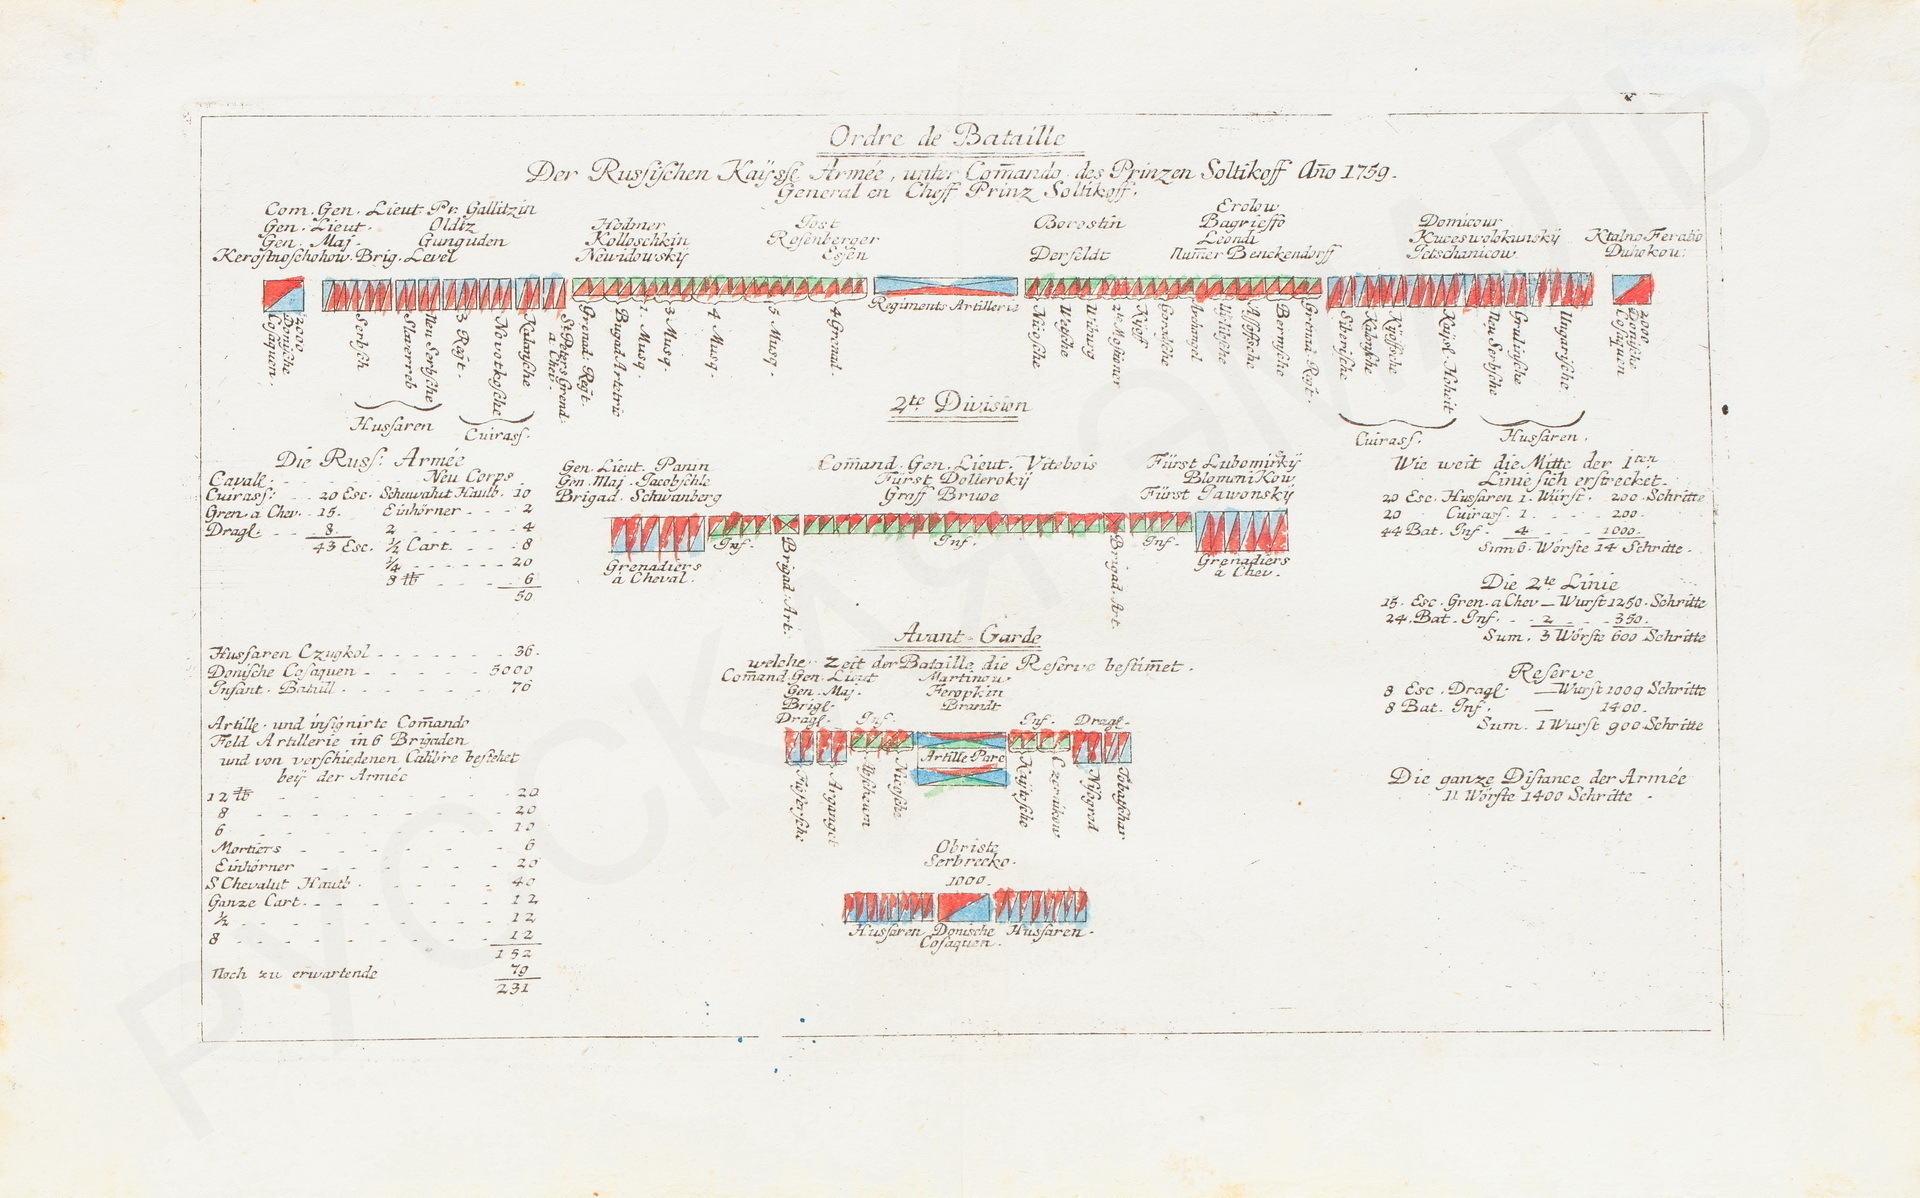 Ordre de Bataille
Der Rusſiſchen Kaÿsſe Armée, unter Com̄ando des Prinzen Soltikoff Año 1759.
General en Cheff Prinz Soltikoff.
Com. Gen. Lieut. Pr. Gallitzin
Gen. Lieut. Oldtz
Gen. Maj. Gunguden
Brig. Level
Hodmer
Kolloschkin
Newidowskÿ
Jost
Rosenberger
Esſen
Borostin
Derfeldt
Erolow
Bagrieffo
Leondi
Num̄er Benckendorff
Domicour
Kuceswolokunskÿ
Jetschanicow
Ktalno Ferabo
Duhokou.
Regiments Artillerie
2000 Doniſche Coſaquen.
Serbſch
Slawerreb
Neu Serbſche
3 Regt.
Novotkeſche
Kaſanſche
St. Peters Grend. a Chev.
Grenad. Regt.
Brigad Artelrie
1. Musq.
3 Musq.
4 Musq.
5 Musq.
4 Grenad.
Niesſche
Wetſche
Wiburg
Kÿoff
Archangel
Grenad. Regt.
Siberiſche
Kÿoffsche
Kaiſl. Hoheit
Neu Serbſche
Gruſinſche
Ungariſche
2000 Doniſche Coſaquen
Huſſaren
Cuiraſſ.
Cuiraſſ.
Huſſaren.
2te Division
Die Ruſſ. Armée
Cavale. Neu Corps
Cuiraſſ. 20 Esc. Schuwalut Hautb. 10
Gren. a Chev. 15. Einhörner 2
Dragl. 8. 2 4
43 Esc. ½ Cart. 8
¼ 20
8 ℔ 6
50
Gen. Lieut. Panin
Gen. Maj. Jacobſchle
Brigad. Schwanberg
Com̄and. Gen. Lieut. Vitebois
Fürst Dollerokÿ
Graff Bruve
Fürst Lubomirſkÿ
BlomniKow
Fürst Jawonskÿ
Inf. Inf. Inf.
Grenadiers à Cheval.
Brigad. Art.
Brigad. Art.
Grenadiers à Chev.
Wie weit die Mitte der 1ten
Linie ſich erſtrecket.
20 Esc. Huſſaren 1. Würſt. 200. Schritte
20 Cuiraſſ. 1 200.
44 Bat. Inf. 4 1000.
Sum 6. Wörſte 14 Schritte.
Die 2te Linie
15. Esc. Gren. a Chev — Wurſt 1250. Schritte
24. Bat. Inf. 2 350.
Sum. 3 Wörſte 600 Schritte
Reſerve
8 Esc. Dragl. — Wurſt 1009 Schritte
8 Bat. Inf. — 1400.
Sum. 1 Wurſt 900 Schritte
Die ganze Diſtance der Armée
11 Wörſte 1400 Schritte
Huſſaren Czugkol 36.
Doniſche Coſaquen 5000
Infant. Bataill. 76
Artille. und inſignirte Com̄ando
Feld Artillerie in 6 Brigaden
und von verſchiedenen Calibre beſtehet
beÿ der Armée
12 ℔ 20
8 20
6 10
Mortiers 6
Einhörner 20
S Chevalut Hautb. 40
Ganze Cart. 12
½ 12
8 12
152
Noch zu erwartende 79
231
Avant-Garde
welche Zeit der Bataille, die Reſerve beſtim̄et.
Com̄and. Gen. Lieut Martinow
Gen. Maj. Feropkin
Brigl. Brandt
Dragl. Inf. Inf. Dragl.
Artille Parc
Arganget
Abſcheum
Niesſche
Czernikow
Niſegrod
Tobatſchar
Obriste
Serbrecko.
1000.
Huſſaren Doniſche Coſaquen. Huſſaren.
РУССКАЯ ЭМАЛЬ